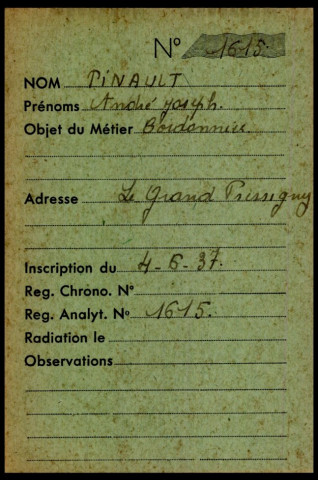 N° 1615.
NOM PINAULT
Prénoms André Joseph.
Objet du Métier Cordonnier.
Adresse Le Grand Pressigny
Inscription du 4-6-37.
Reg. Chrono. N°
Reg. Analyt. N° 1615.
Radiation le
Observations